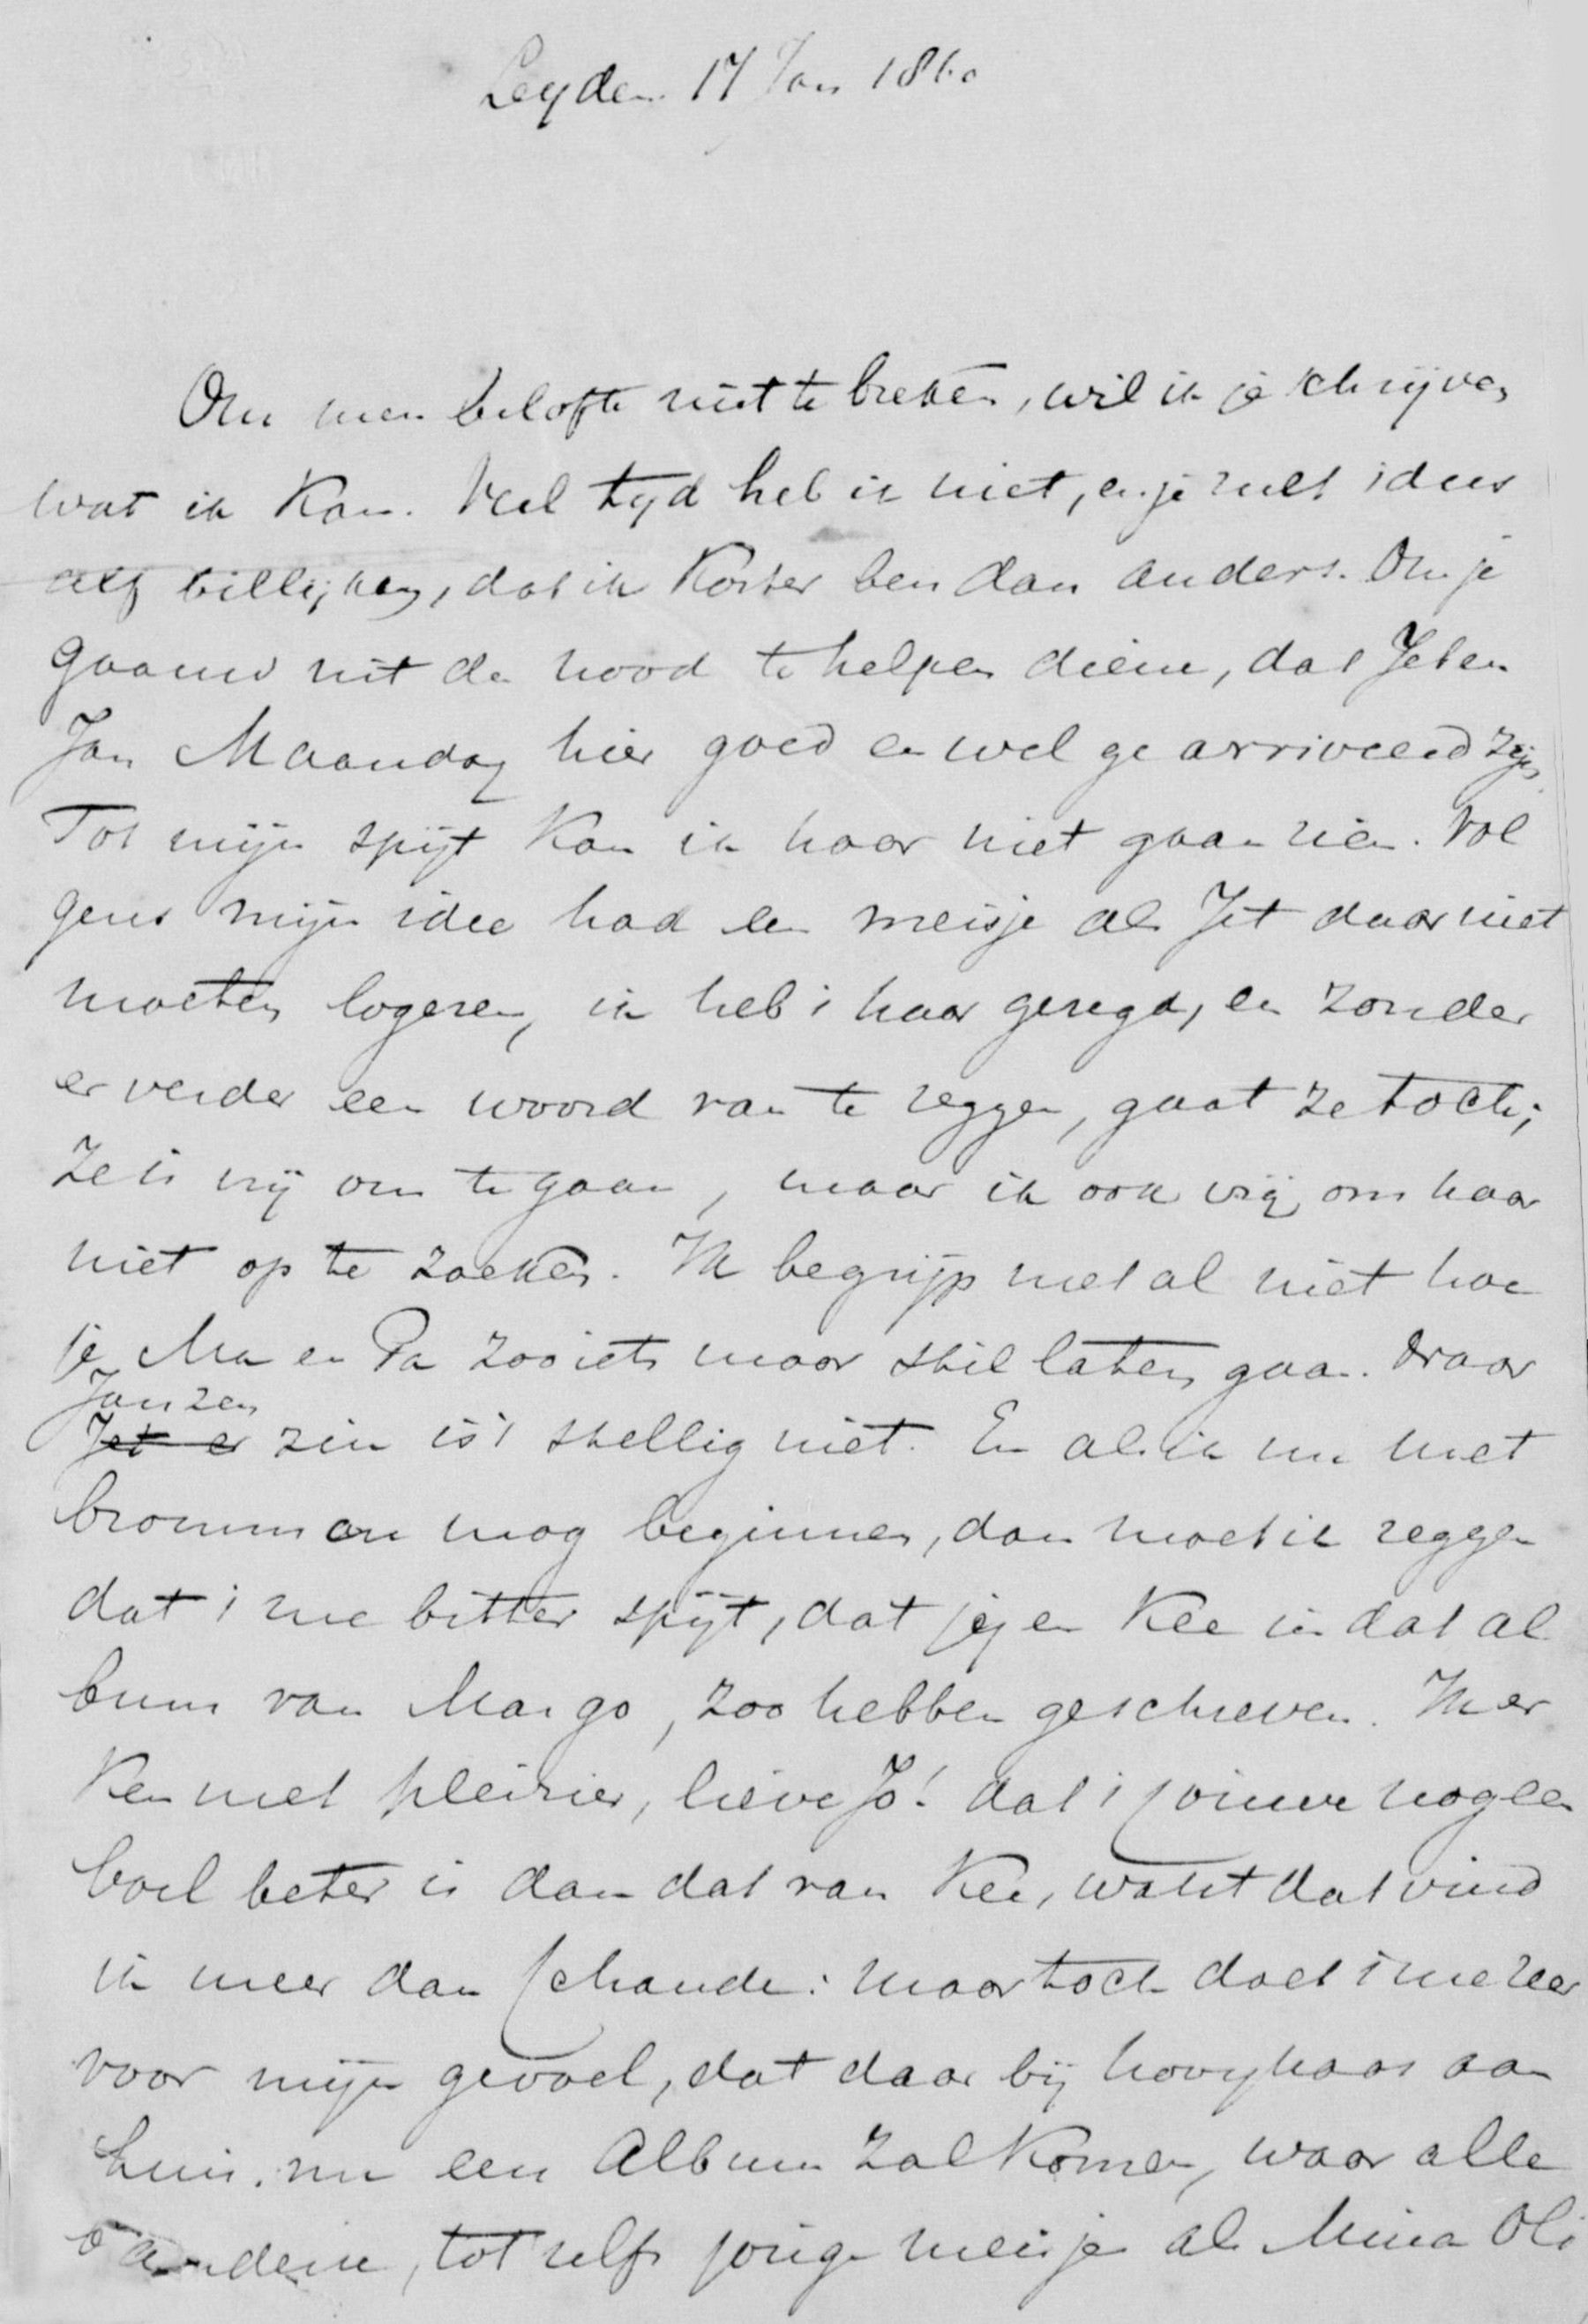 Leyden 17 Jan 1860
Om men belofte niet te breken, wil ik je schrijven
wat ik kan. Veel tyd heb ik niet, en je zult idees
billijken, dat ik korter ben dan anders. Om je
gaauw uit de nood te helpen diene, dat Jet en
Jan Maandag hier goed en wel gearriveerd zijn
Tot mijn spijt kan ik haar niet gaan zien. Vol
gens mijn idee had een meisje als Jet daar niet
moeten logeren, ik heb 't haar gezegd, en zonder
er verder een woord van te zeggen, gaat ze toch;
Ze is vrij om te gaan, maar ik ook vrij om haar
niet op te zoeken. Ik begrijp met al niet hoe
je Ma en Pa zoo iets maar stil laten gaan. Naar
Janzen
Jet er zin is 't stellig niet. En als ik nu met
brommen mag beginnen, dan moet ik zeggen
dat 't me bitter spijt, dat jij en Kee in dat al
bum van Margo, zoo hebben geschreven. Ik er
ken met pleizier, lieve Jo! dat 't jouwe nog een
boel beter is dan dat van Kee, want dat vind
ik meer dan schande: maar toch doet 't me zeer
voor mijn gevoel, dat daar bij aan
huis, nu een Album zal komen, waar alle
tot zelfs jonge meisjes als Mina Oli